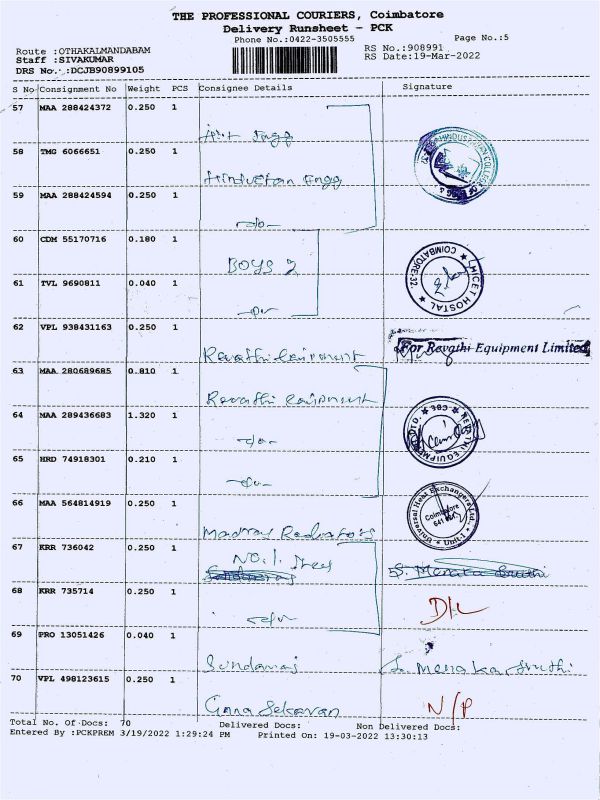 THE PROFESSIONAL COURIERS, Coimbatore
Delivery Runsheet - PCK
Phone No.:0422-3505555
Page No.:5
Route :OTHAKALMANDABAM
RS No.:908991
Staff :SIVAKUMAR
RS Date:19-Mar-2022
DRS No.:DCJB90899105
S No Consignment No Weight PCS Consignee Details Signature
57 MAA 288424372 0.250 1
58 TMG 6066651 0.250 1
Hindustan Engg
59 MAA 288424594 0.250 1
60 CDM 55170716 0.180 1
BOYS 2
COIMBATORE-32. HICET HOSTAL
61 TVL 9690811 0.040 1
62 VPL 938431163 0.250 1
Revathi
For Revathi Equipment Limited
63 MAA 280689685 0.810 1
Revathi
64 MAA 289436683 1.320 1
REVATHI EQUIPMENT LTD. CBE
65 HRD 74918301 0.210 1
66 MAA 564814919 0.250 1
Madras Radiators
Universal Heat Exchangers Ltd. Unit-I
Coimbatore
67 KRR 736042 0.250 1
NO.1.
68 KRR 735714 0.250 1
D/L
69 PRO 13051426 0.040 1
Sundaraj
S. Menaka Sruthi
70 VPL 498123615 0.250 1
Gana Sekaran
N/P
Total No. Of Docs: 70 Delivered Docs: Non Delivered Docs:
Entered By :PCKPREM 3/19/2022 1:29:24 PM Printed On: 19-03-2022 13:30:13